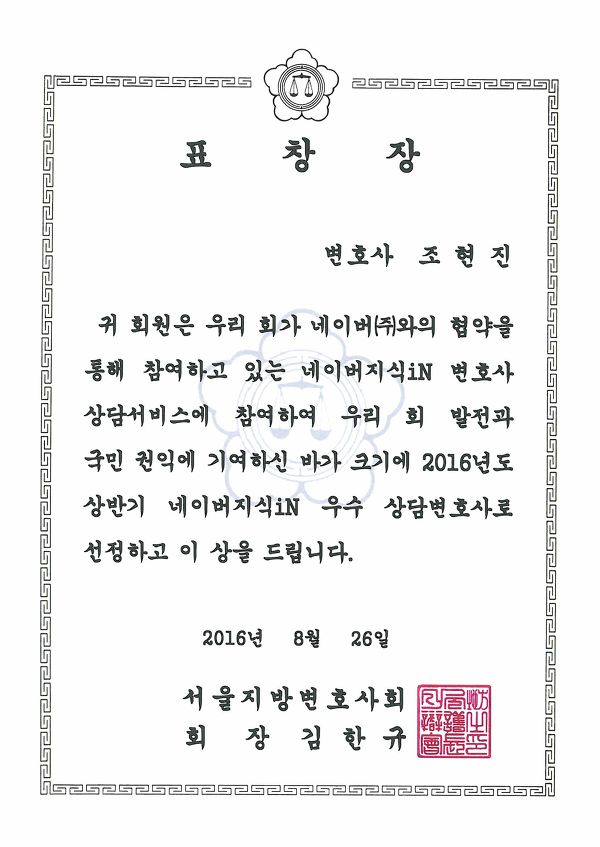 표 창 장
변호사 조현진
귀 회원은 우리 회가 네이버㈜와의 협약을
통해 참여하고 있는 네이버지식iN 변호사
상담서비스에 참여하여 우리 회 발전과
국민 권익에 기여하신 바가 크기에 2016년도
상반기 네이버지식iN 우수 상담변호사로
선정하고 이 상을 드립니다.
2016년 8월 26일
서울지방변호사회
회 장 김 한 규